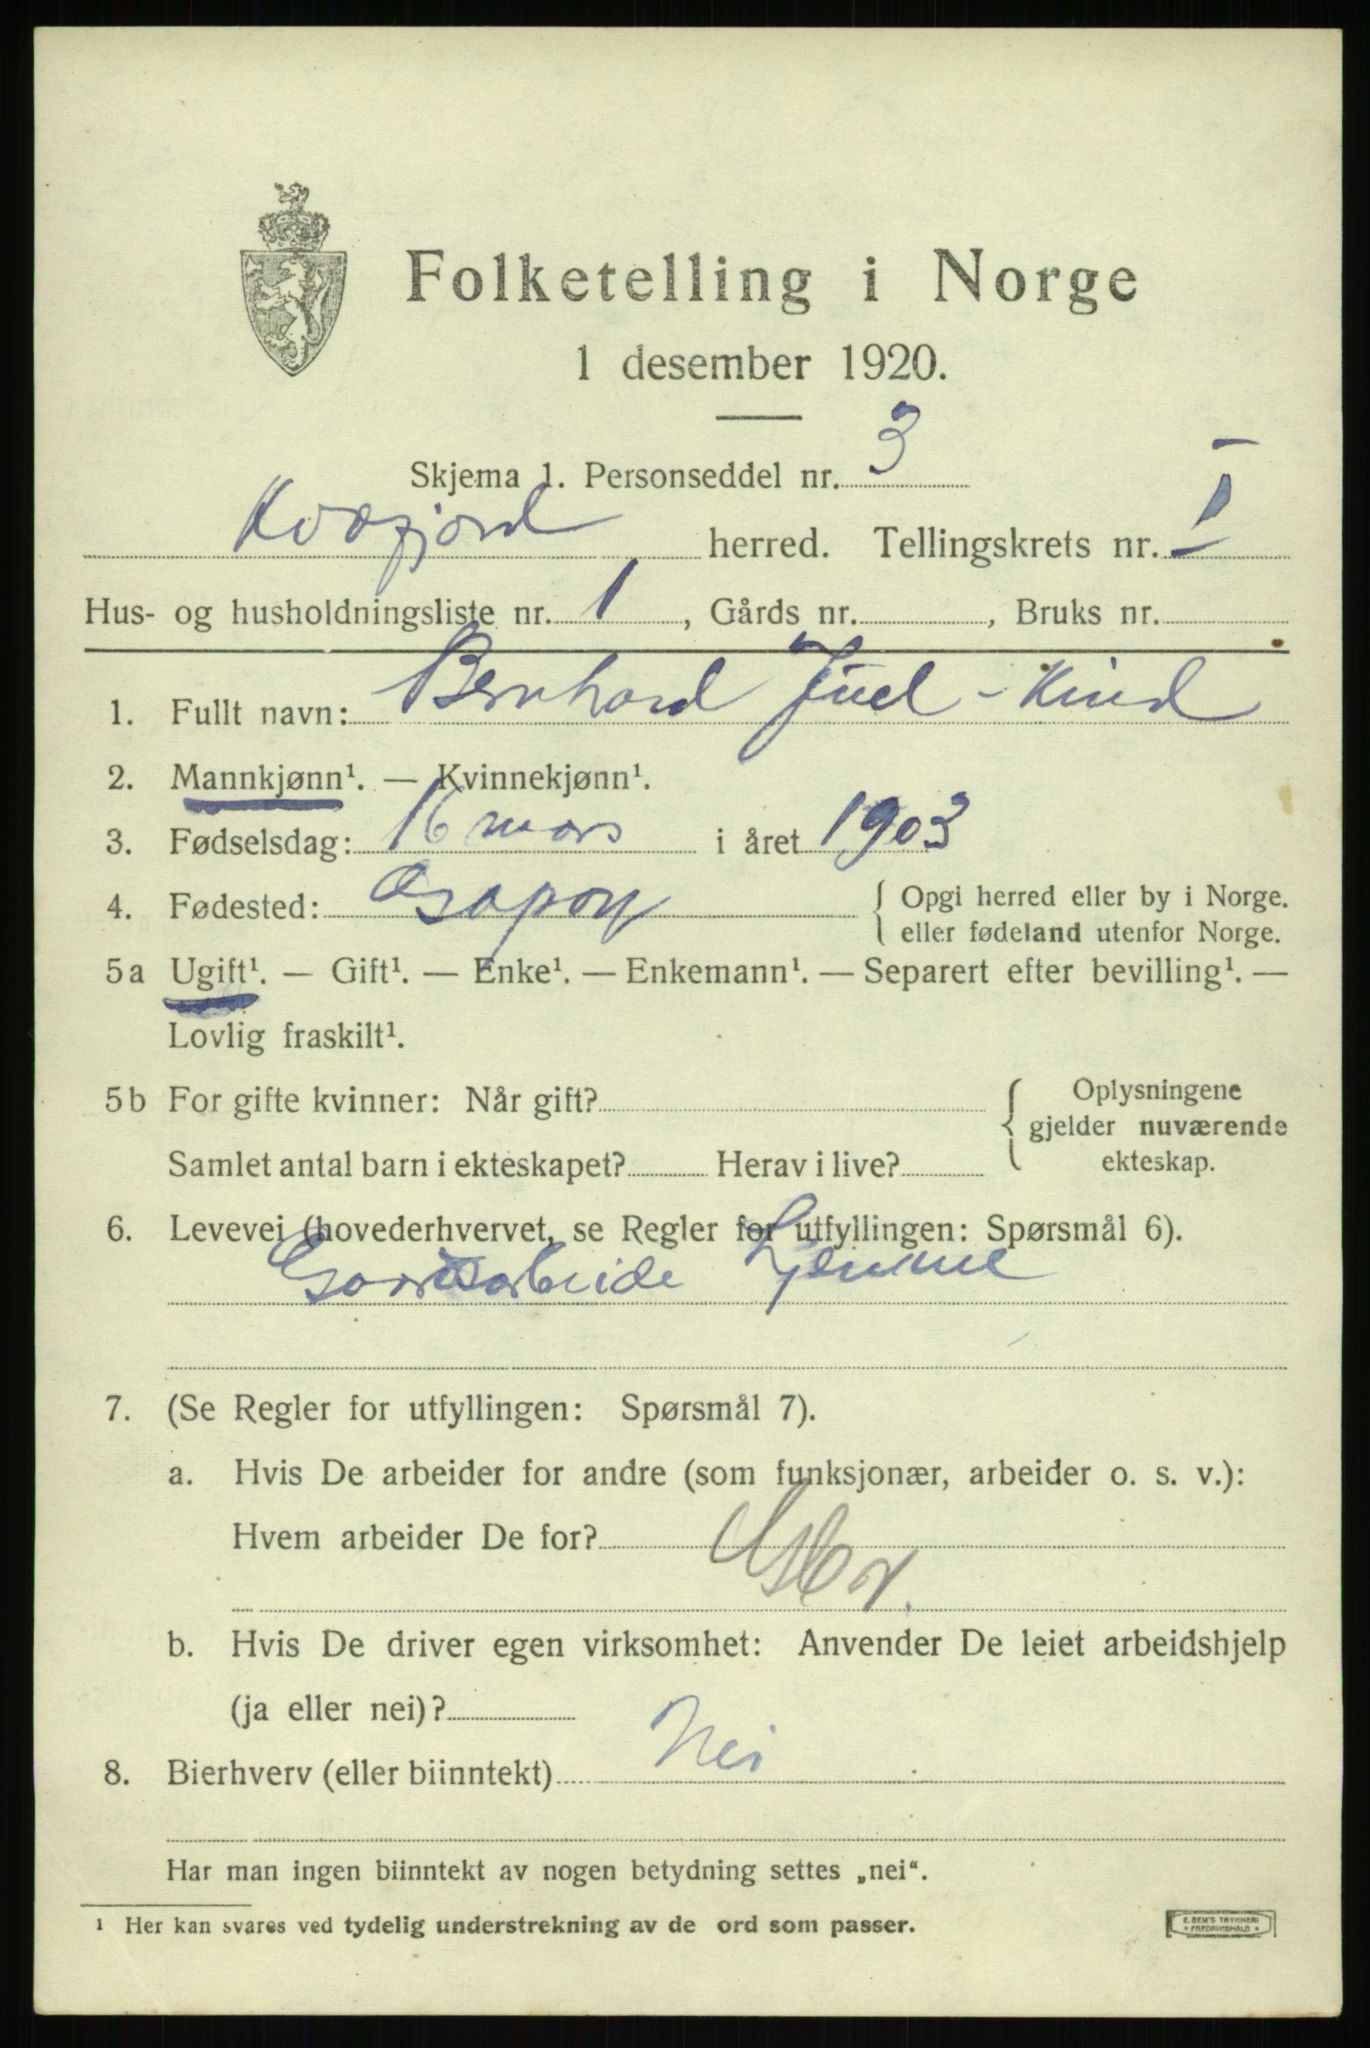 Folketelling i Norge
1 desember 1920.
Skjema 1. Personseddel nr. 3
Kvæfjord herred. Tellingskrets nr. I
Hus- og husholdningsliste nr. 1, Gårds nr. , Bruks nr.
1. Fullt navn: Bernhard Juel-Kind
2. Mannkjønn¹. — Kvinnekjønn¹.
3. Fødselsdag: 16 mars i året 1903
4. Fødested: { Opgi herred eller by i Norge.
eller fødeland utenfor Norge.
5a Ugift¹. — Gift¹. — Enke¹. — Enkemann¹. — Separert efter bevilling¹. —
Lovlig fraskilt¹.
5b For gifte kvinner: Når gift? { Oplysningene
gjelder nuværende
Samlet antal barn i ekteskapet? Herav i live? ekteskap.
6. Levevei (hovederhvervet, se Regler for utfyllingen: Spørsmål 6).
Gaardsarbeide hjemme
7. (Se Regler for utfyllingen: Spørsmål 7).
a. Hvis De arbeider for andre (som funksjonær, arbeider o. s. v.):
Hvem arbeider De for?
b. Hvis De driver egen virksomhet: Anvender De leiet arbeidshjelp
(ja eller nei)?
8. Bierhverv (eller biinntekt) Nei
Har man ingen biinntekt av nogen betydning settes „nei“.
¹ Her kan svares ved tydelig understrekning av de ord som passer.
E. SEM'S TRYKKERI
FREDRIKSHALD